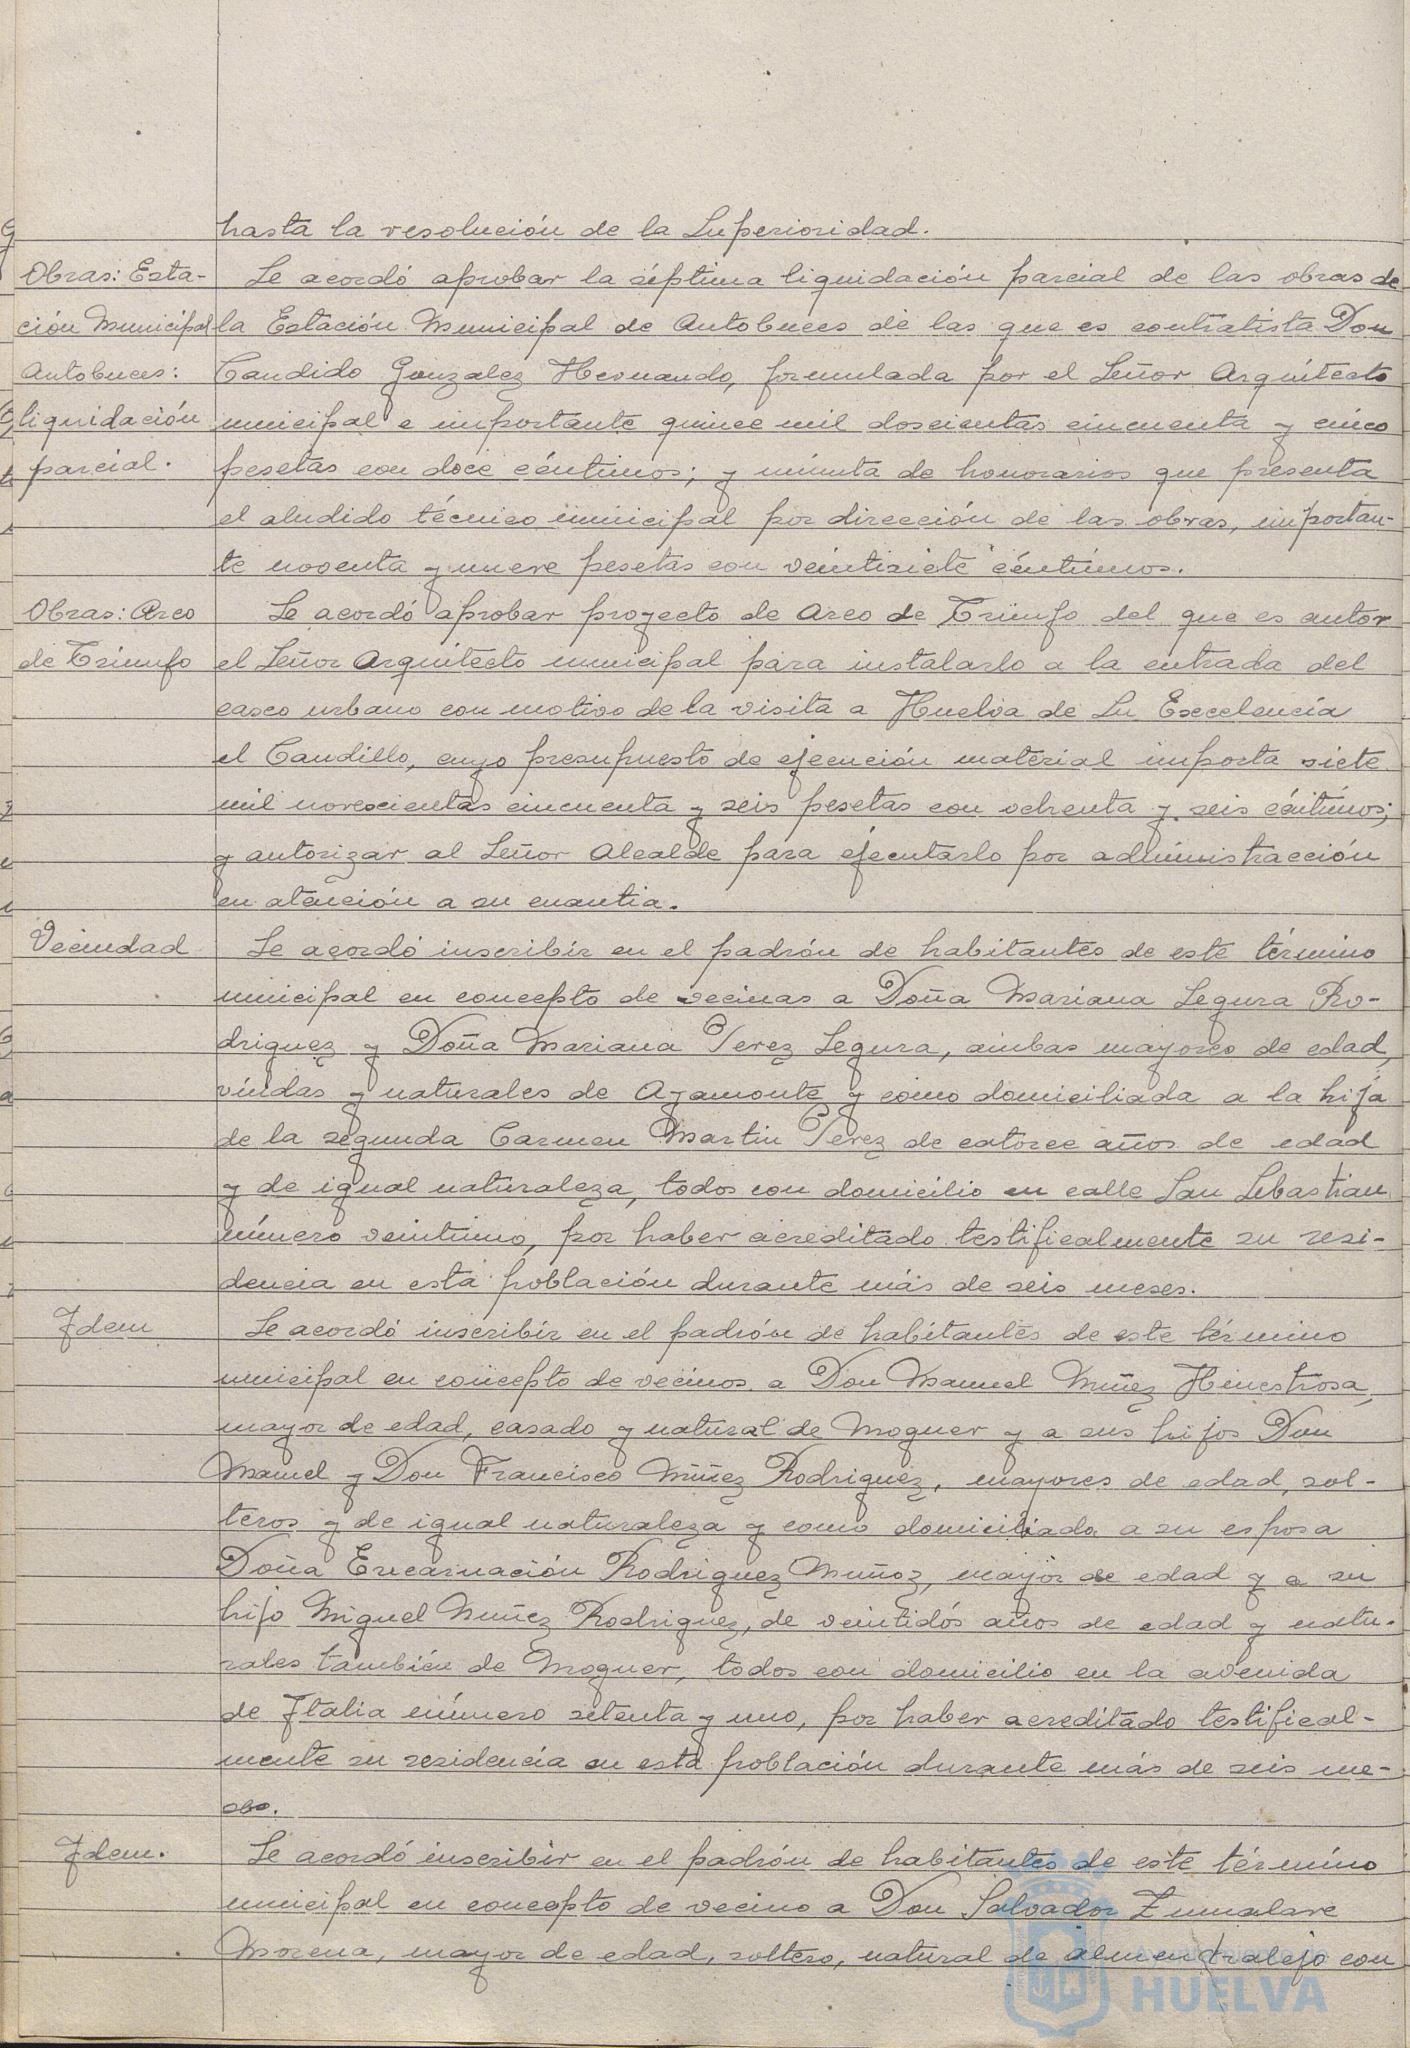 hasta la resolución de la Superioridad.
Obras: Esta-
ción Municipal
Autobuces:
liquidación
parcial.
Se acordó aprobar la séptima liquidación parcial de las obras de
la Estación Municipal de Autobuces de las que es contratista Don
Candido Gonzalez Hernando, formulada por el Señor Arquitecto
municipal e importante quince mil doscientas cincuenta y cinco
pesetas con doce céntimos; y minuta de honorarios que presenta
el aludido técnico municipal por dirección de las obras, importan-
te noventa y nueve pesetas con veintisiete céntimos.
Obras: Arco
de Triunfo
Se acordó aprobar proyecto de Arco de Triunfo del que es autor
el Señor Arquitecto municipal para instalarlo a la entrada del
casco urbano con motivo de la visita a Huelva de Su Excelencia
el Caudillo, cuyo presupuesto de ejecución material importa siete
mil novescientas cincuenta y seis pesetas con ochenta y seis céntimos;
y autorizar al Señor Alcalde para ejecutarlo por administracción
en atención a su cuantia.
Vecindad
Se acordó inscribir en el padrón de habitantes de este término
municipal en concepto de vecinas a Doña Mariana Segura Ro-
driguez y Doña Mariana Perez Segura, ambas mayores de edad,
viudas y naturales de Ayamonte y como domiciliada a la hija
de la segunda Carmen Martin Perez de catorce años de edad
y de igual naturaleza, todos con domicilio en calle San Sebastian
número veintiuno, por haber acreditado testificalmente su resi-
dencia en esta población durante más de seis meses.
Idem
Se acordó inscribir en el padrón de habitantes de este término
municipal en concepto de vecinos a Don Manuel Nuñez Hinestrosa,
mayor de edad, casado y natural de Moguer y a sus hijos Don
Manuel y Don Francisco Núñez Rodriguez, mayores de edad, sol-
teros y de igual naturaleza y como domiciliada a su esposa
Doña Encarnación Rodriguez Muñoz, mayor de edad y a su
hijo Miguel Nuñez Rodriguez, de veintidós años de edad y natu-
rales también de Moguer, todos con domicilio en la avenida
de Italia número setenta y uno, por haber acreditado testifical-
mente su residencia en esta población durante más de seis me-
ses.
Idem.
Se acordó inscribir en el padrón de habitantes de este término
municipal en concepto de vecino a Don Salvador
Morena, mayor de edad, soltero, natural de Almendralejo con
HUELVA